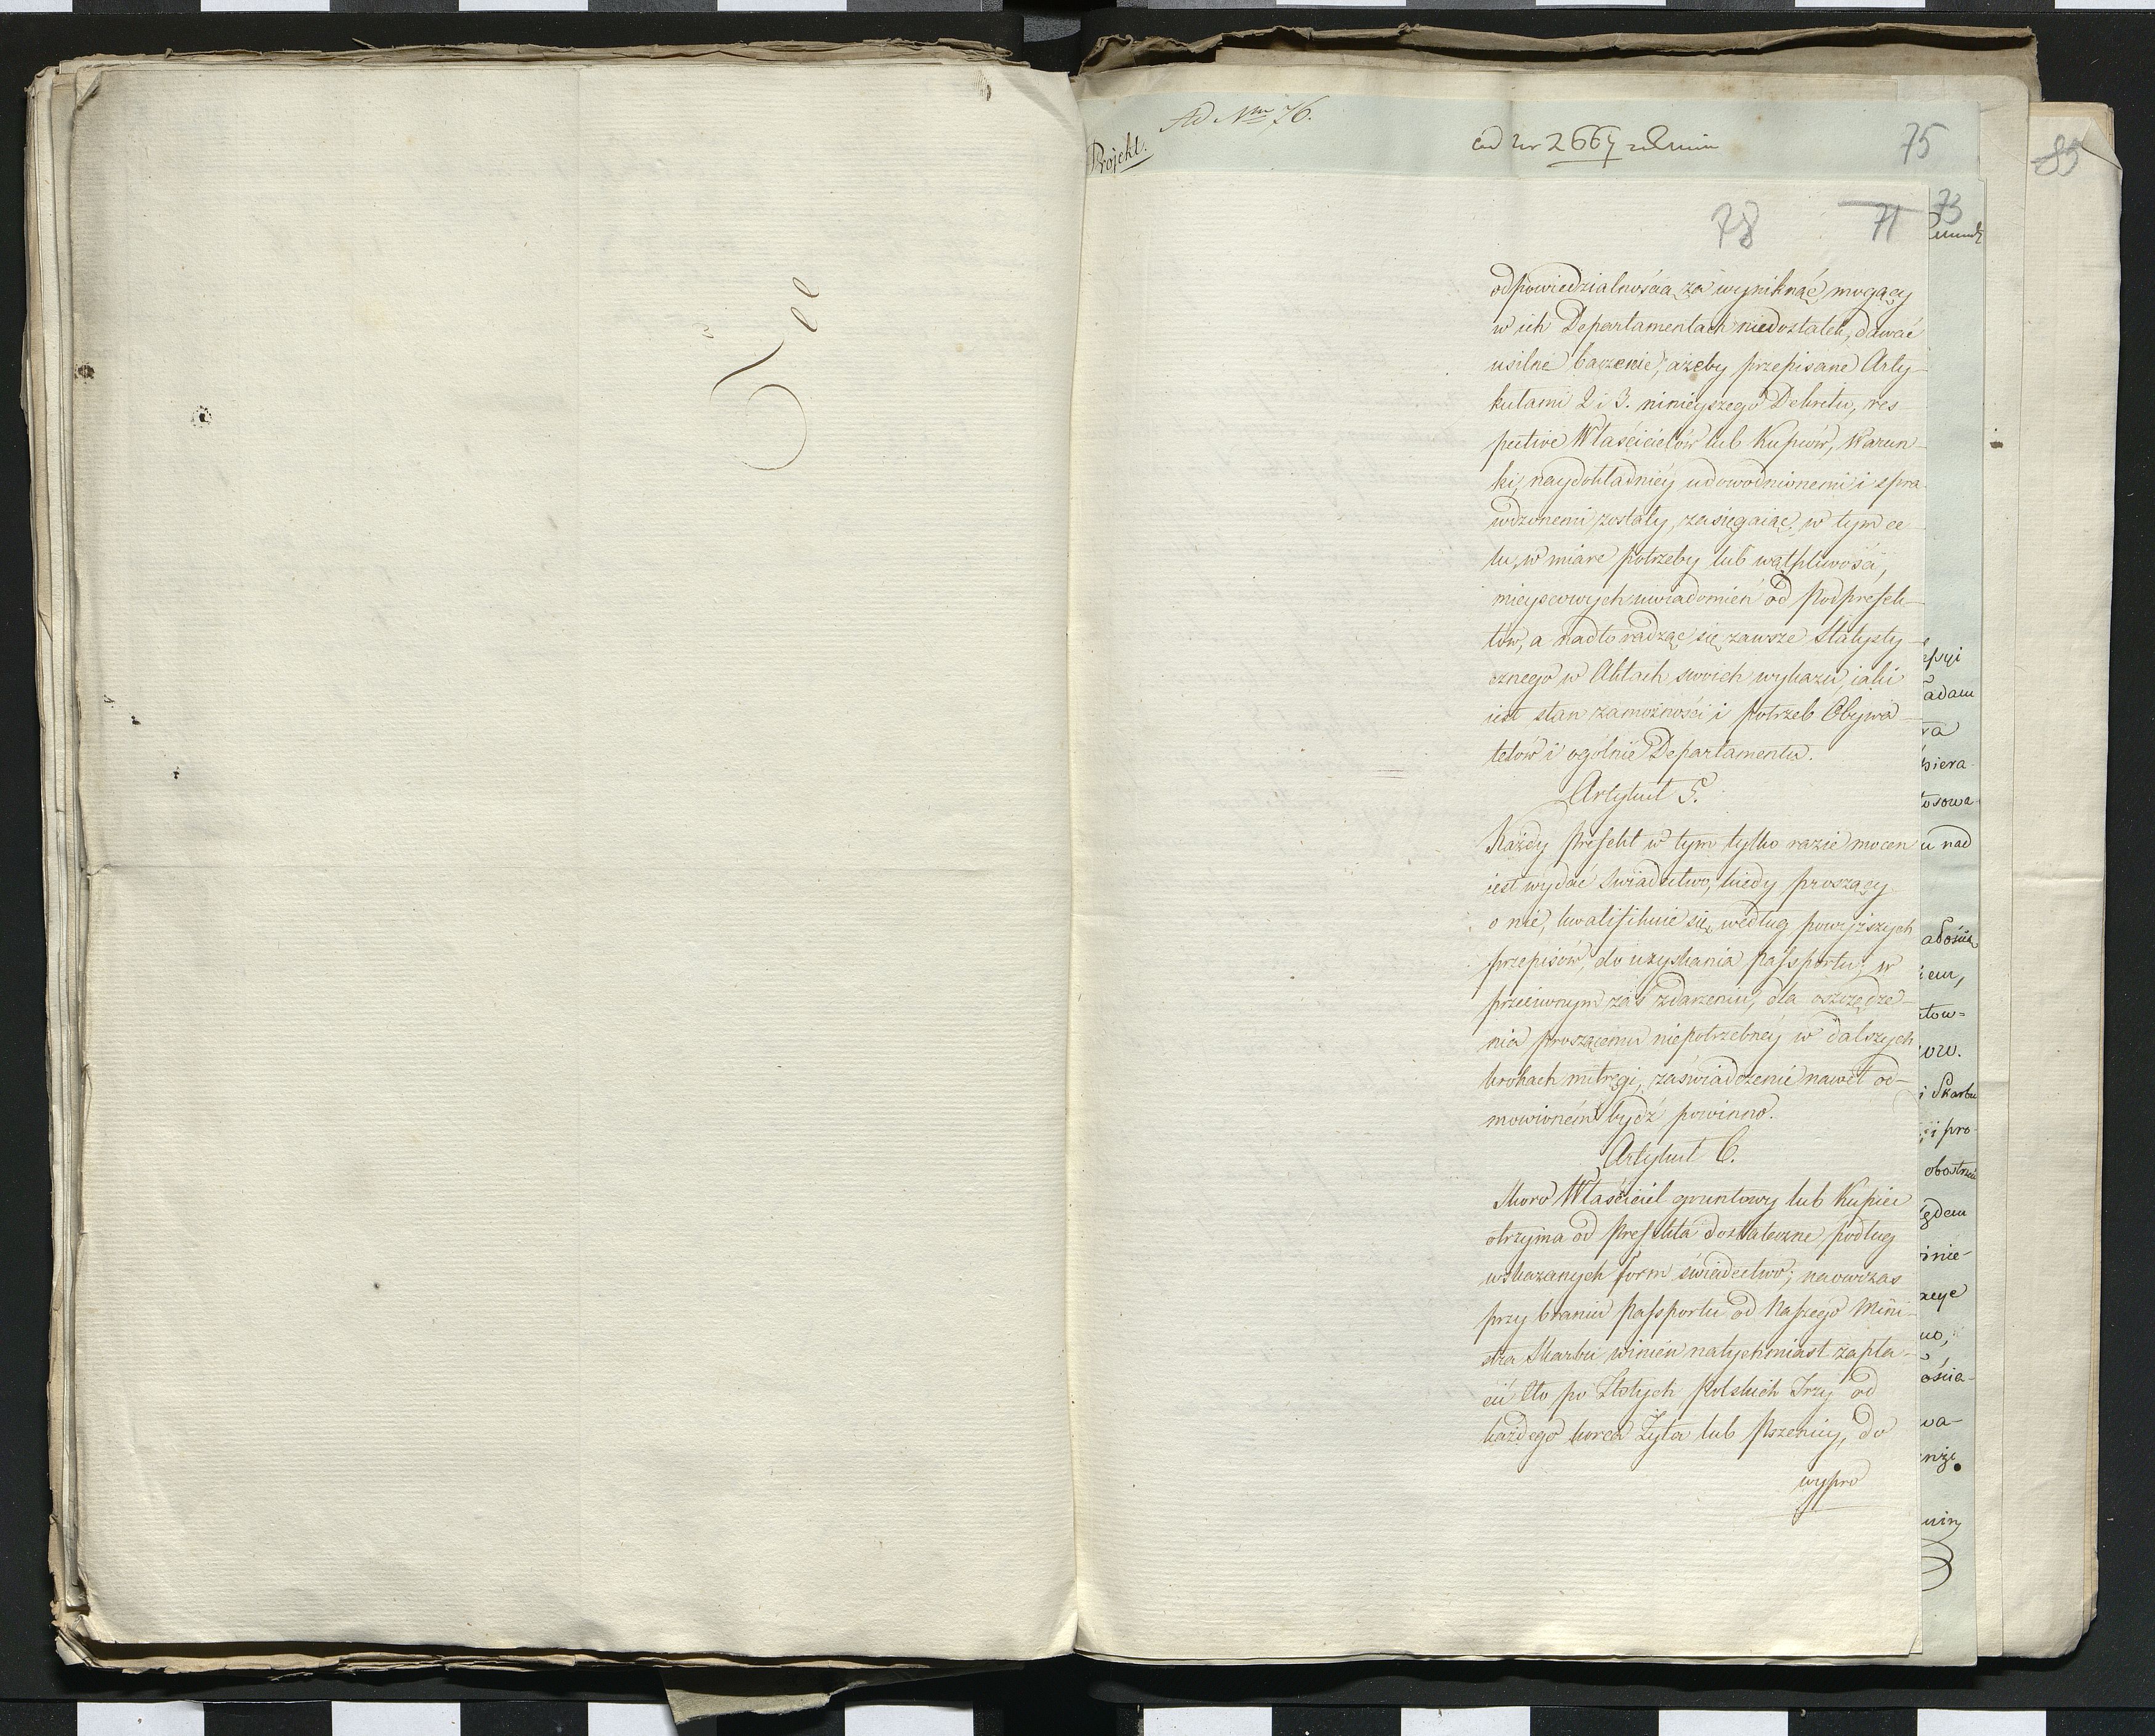 Ad Nrm 76.
Projekt.
ad Nr 2667
75
85
78
71
73
odpowiedzialnością za wyniknąć mogący
w ich Departamentach niedostatek, dawać
usilne baczenie, ażeby przepisane Arty-
kułami 2 i 3. ninieyszego Dekretu, res-
pective Właścicielów lub Kupców, Warun-
ki, naydokładniéy udowodnionemi i spra-
wdzonemi zostały, zasięgaiąc, w tym ce-
lu, w miarę potrzeby lub wątpliwości,
mieyscowych uwiadomień od Podprefek-
tów, a nadto radząc się zawsze Statysty-
cznego w Aktach swoich wykazu, iaki
iest stan zamożności i potrzeb Obywa-
telów i ogólnie Departamentu.
Artykuł 5.
Każdy Prefekt w tym tylko razie mocen
iest wydać świadectwo, kiedy proszący
o nie, kwalifikuie się, według powyższych
przepisów, do uzyskania passportu; w
przeciwnym zaś zdarzeniu, dla oszczędze-
nia proszącemu niepotrzebnéy w dalszych
krokach mitręgi, zaświadczenie nawet od-
mowioném bydź powinno.
Artykuł 6.
Skoro Właściciel gruntowy lub Kupiec
otrzyma od Prefekta dostateczne podług
wskazanych form świadectwo; naowczas
przy braniu Passportu od Naszego Mini-
stra Skarbu winien natychmiast zapła-
cić Cło po Złotych Polskich Trzy od
każdego korca Żyta lub Pszenicy, do
wypro
adam
piera-
tosowa-
u nad
iem,
ów.
i Skarbu
i pro-
ędem
inie-
wa-